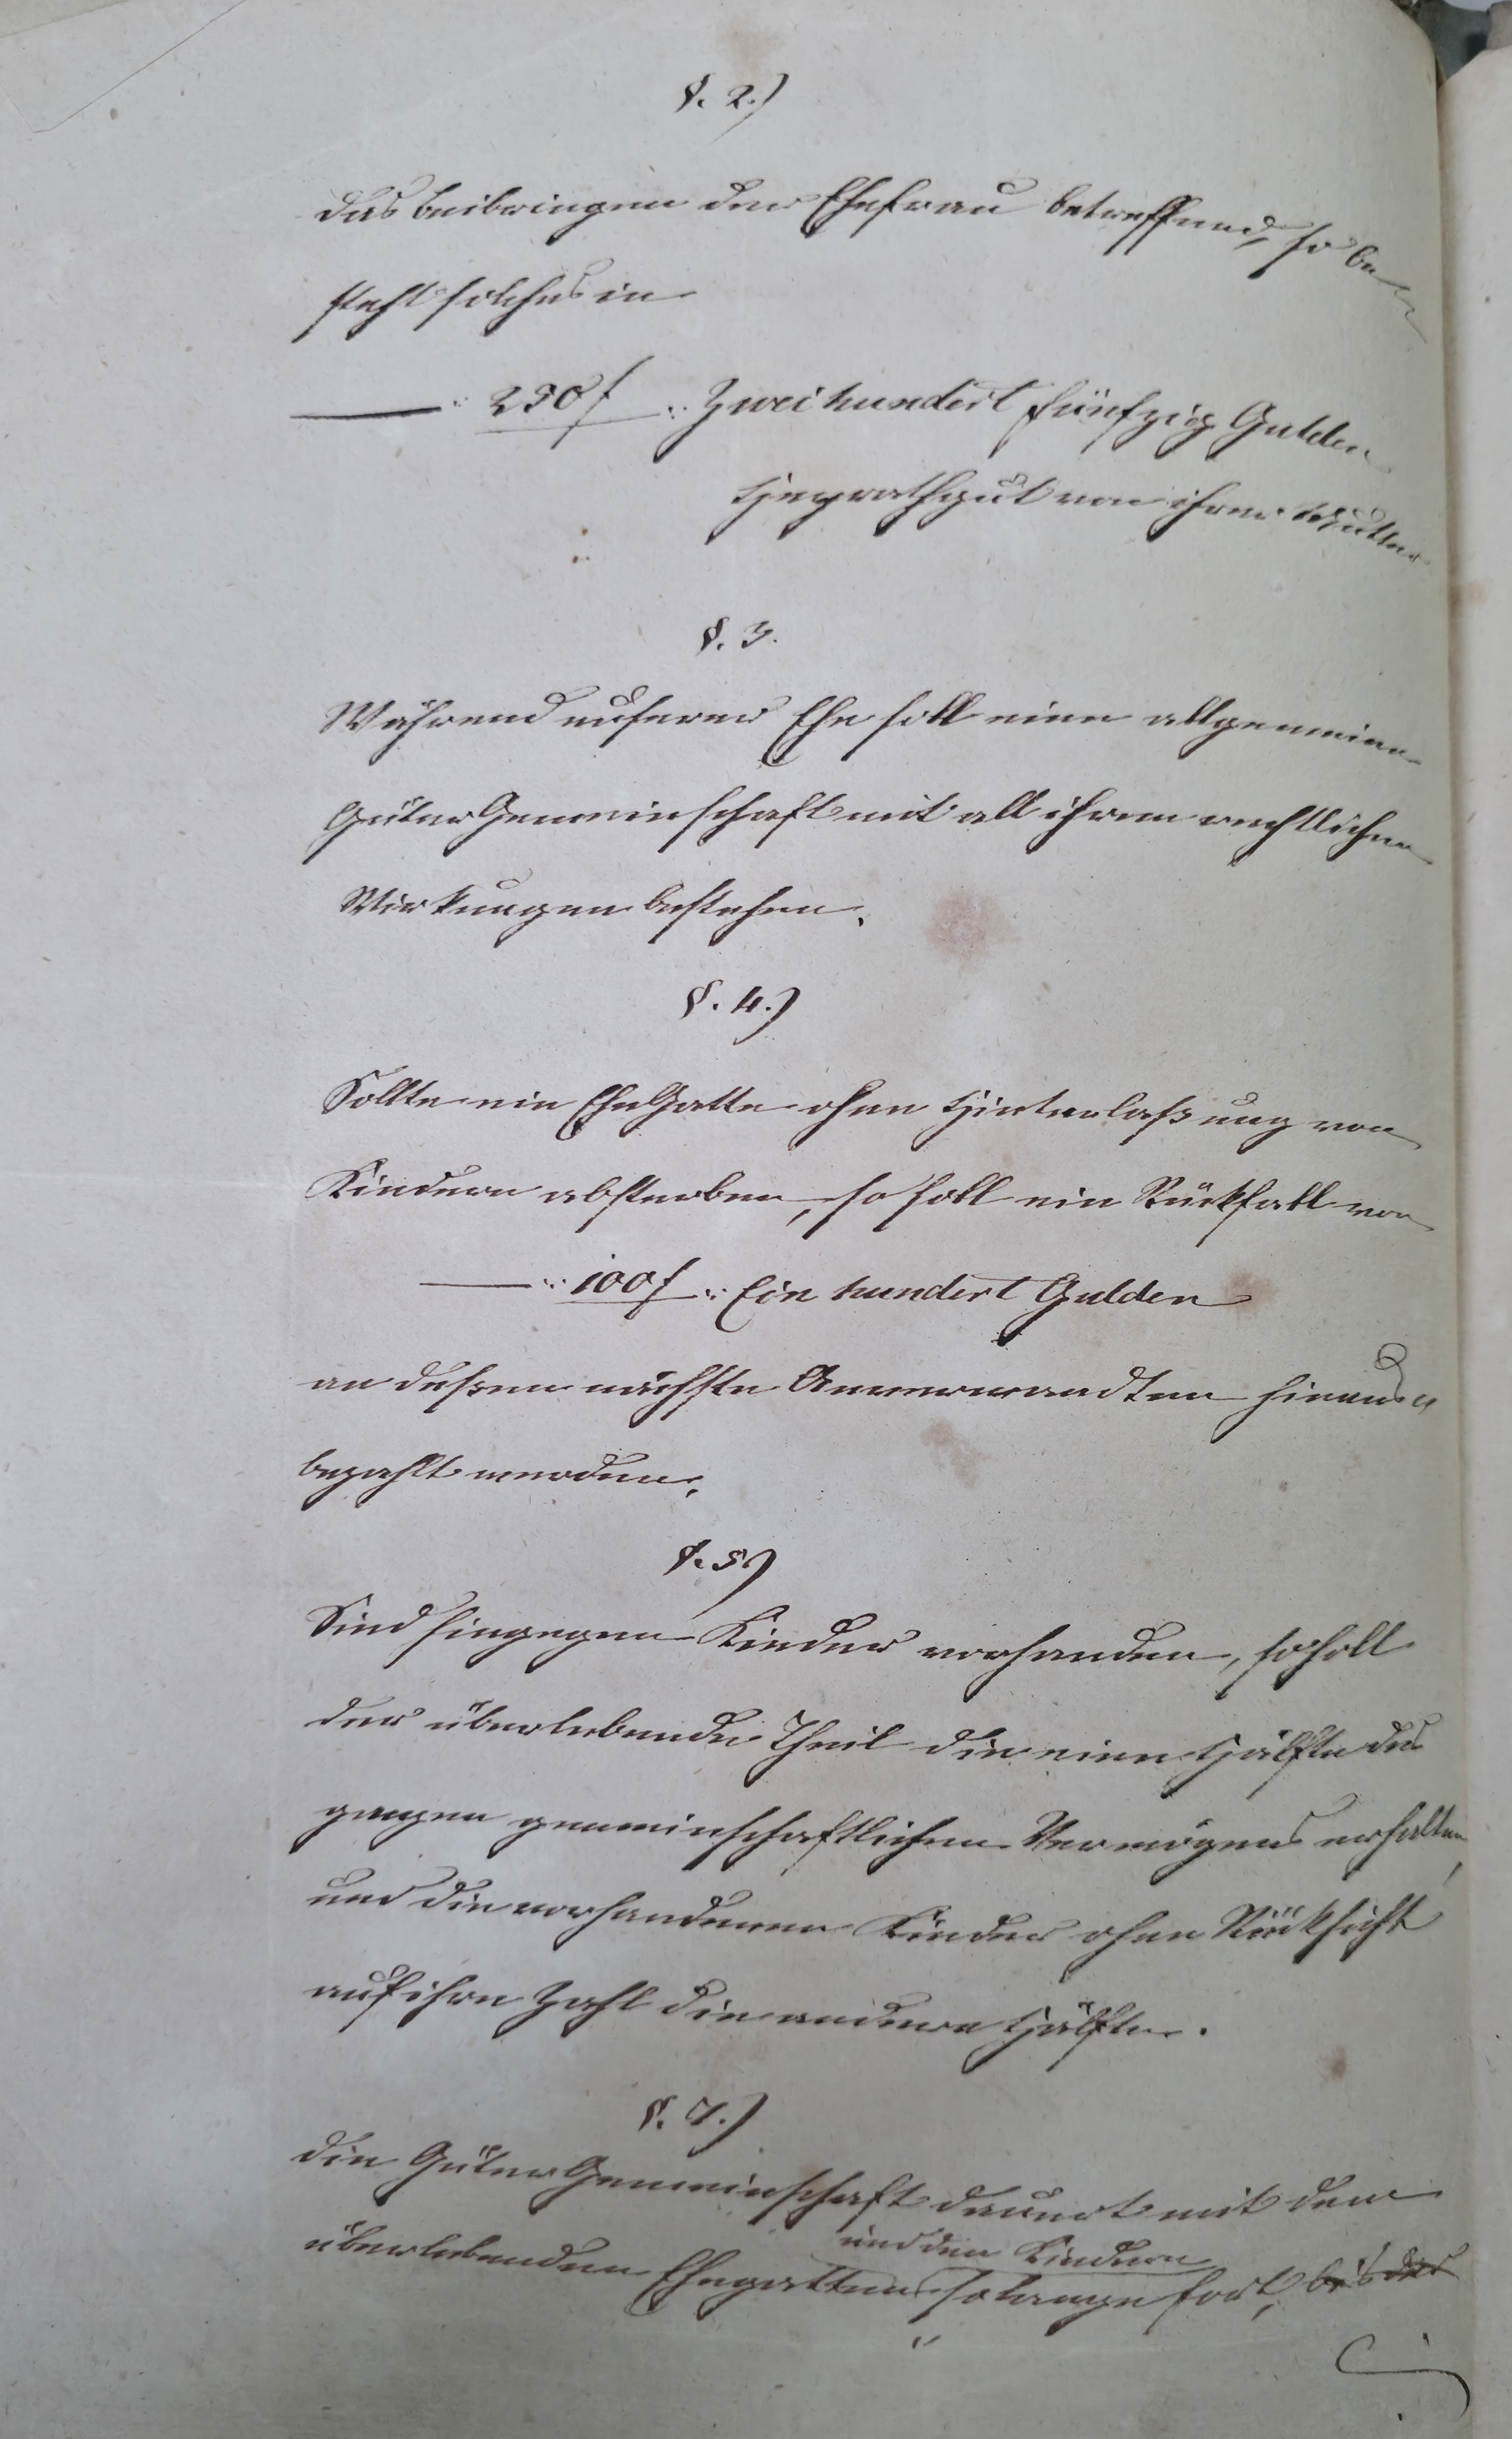 §. 2.)
Das Beibringen der Ehefrau betreffend, so be
steht solches in
—— :250 f: Zweihundert fünfzig Gulden
Heyrathgut von ihrer Mutter
§. 3.
Während unserer Ehe soll eine allgemeine
Güter Gemeinschaft mit all ihren rechtlichen
Wirkungen bestehen.
§. 4.)
Sollte ein EheGatte ohne Hinterlaßung von
Kindern absterben, so soll ein Rückfall von
—— :100 f: Ein hundert Gulden
an deßen nächste Anverwandten hinaus„
bezahlt werden.
§. 5.)
Sind hingegen Kinder vorhanden, so soll
der überlebende Theil die eine Hälfte des
ganzen gemeinschaftlichen Vermögens erhalten,
und die vorhandenen Kinder ohne Rücksicht
auf ihre Zahl die andere Hälfte.
§. 7.)
Die Güter Gemeinschaft dauert mit dem
und den Kindern
überlebenden Ehegatten so lange fort, bis der